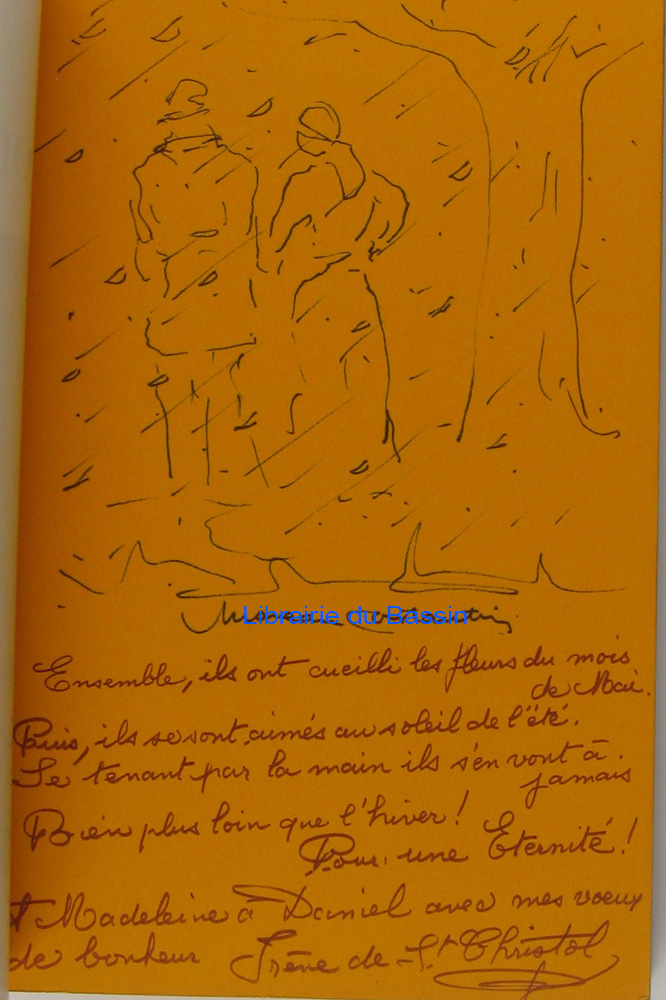 Librairie du Bassin
Ensemble, ils ont cueilli les fleurs du mois
de Mai.
Puis, ils se sont aimés au soleil de l'été.
Se tenant par la main ils s'en vont à
jamais
Bien plus loin que l'hiver!
Pour une Eternité!
Madeleine à Daniel avec mes voeux
de bonheur Irène de St Christol